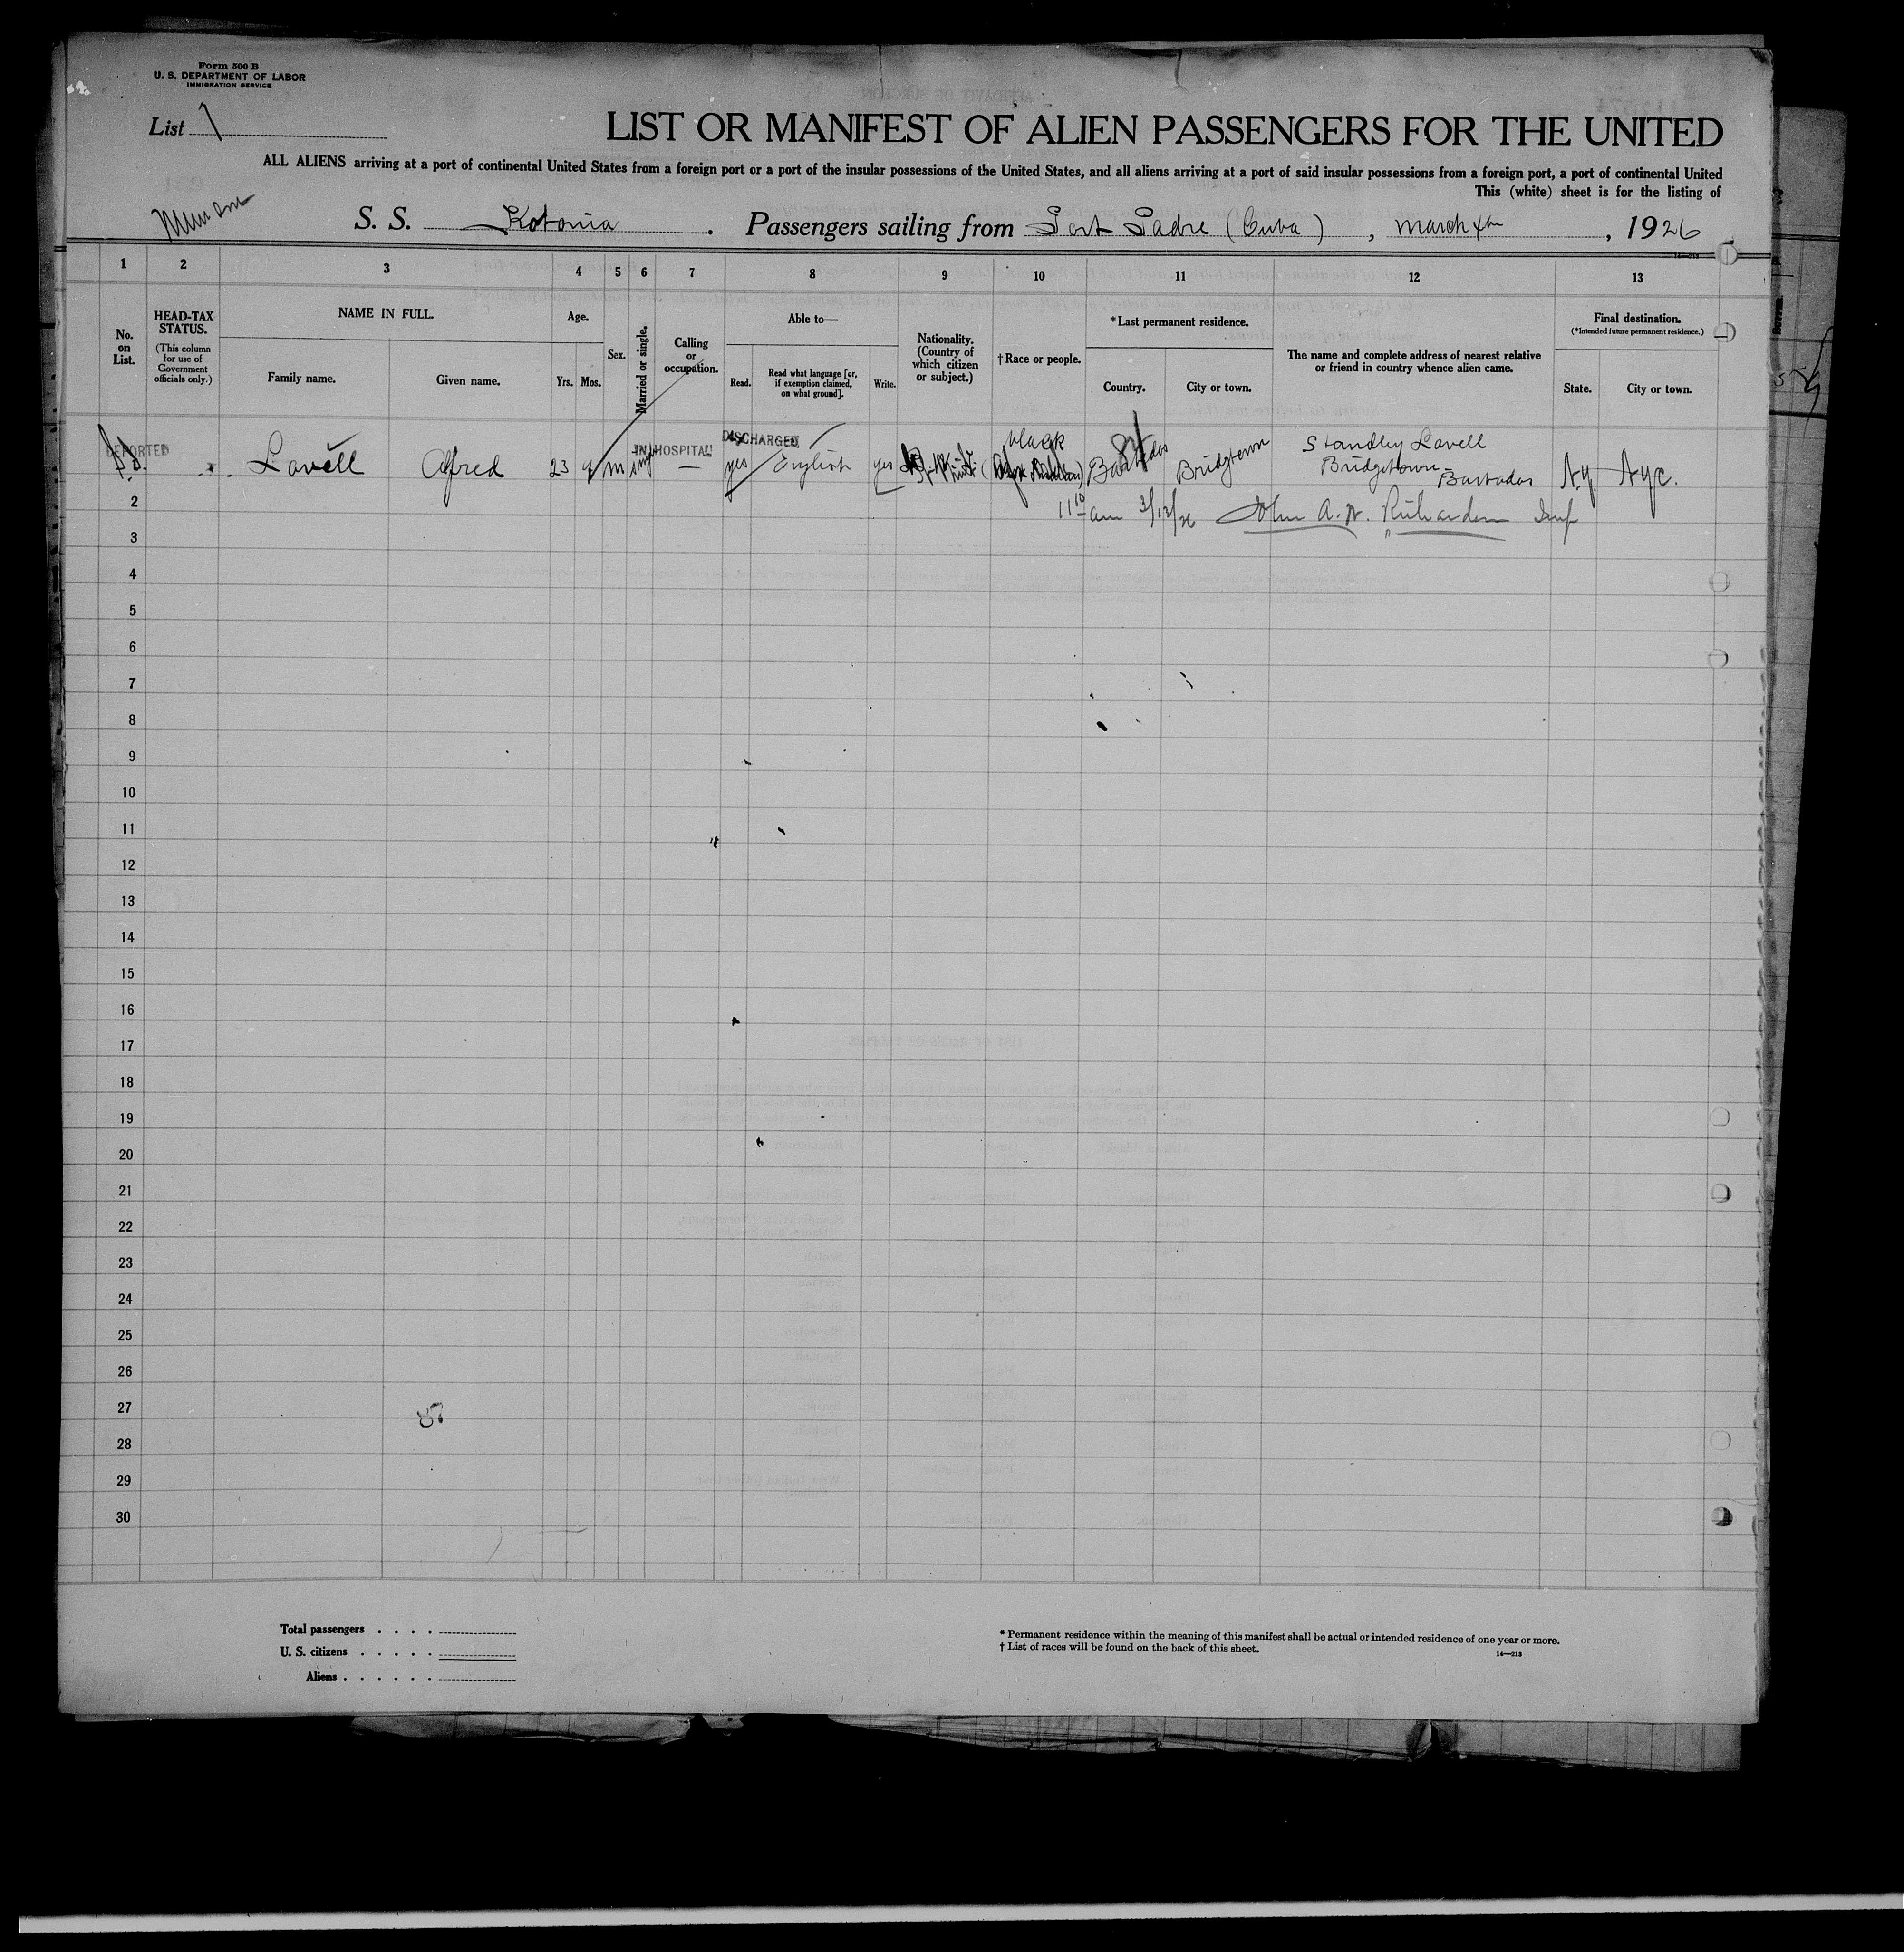 Form 500 B
U. S. DEPARTMENT OF LABOR
IMMIGRATION SERVICE
List 1
LIST OR MANIFEST OF ALIEN PASSENGERS FOR THE UNITED
ALL ALIENS arriving at a port of continental United States from a foreign port or a port of the insular possessions of the United States, and all aliens arriving at a port of said insular possessions from a foreign port, a port of continental United
This (white) sheet is for the listing of
Munson S. S. Kotonia. Passengers sailing from Port Padre (Cuba), March 4th, 1926
14—213
1 2 3 4 5 6 7 8 9 10 11 12 13
No. on List.
HEAD-TAX STATUS.
(This column for use of Government officials only.)
NAME IN FULL.
Family name. Given name.
Age.
Yrs. Mos.
Sex.
Married or single.
Calling or occupation.
Able to—
Read.
Read what language [or, if exemption claimed, on what ground].
Write.
Nationality. (Country of which citizen or subject.)
†Race or people.
*Last permanent residence.
Country. City or town.
The name and complete address of nearest relative or friend in country whence alien came.
Final destination.
(*Intended future permanent residence.)
State. City or town.
DEPORTED IN HOSPITAL DISCHARGED black
Lovell Alfred 23 m sngl — yes English yes Barbados Bridgtown Standley Lovell Bridgetown Barbados N.Y. NYC.
11 10 am 3/12/26 John A. W. Richardson Insp
2
3
4
5
6
7
8
9
10
11
12
13
14
15
16
17
18
19
20
21
22
23
24
25
26
27
28
29
30
Total passengers . . . .
U. S. citizens . . . . .
Aliens . . . . . .
* Permanent residence within the meaning of this manifest shall be actual or intended residence of one year or more.
† List of races will be found on the back of this sheet.
14—213